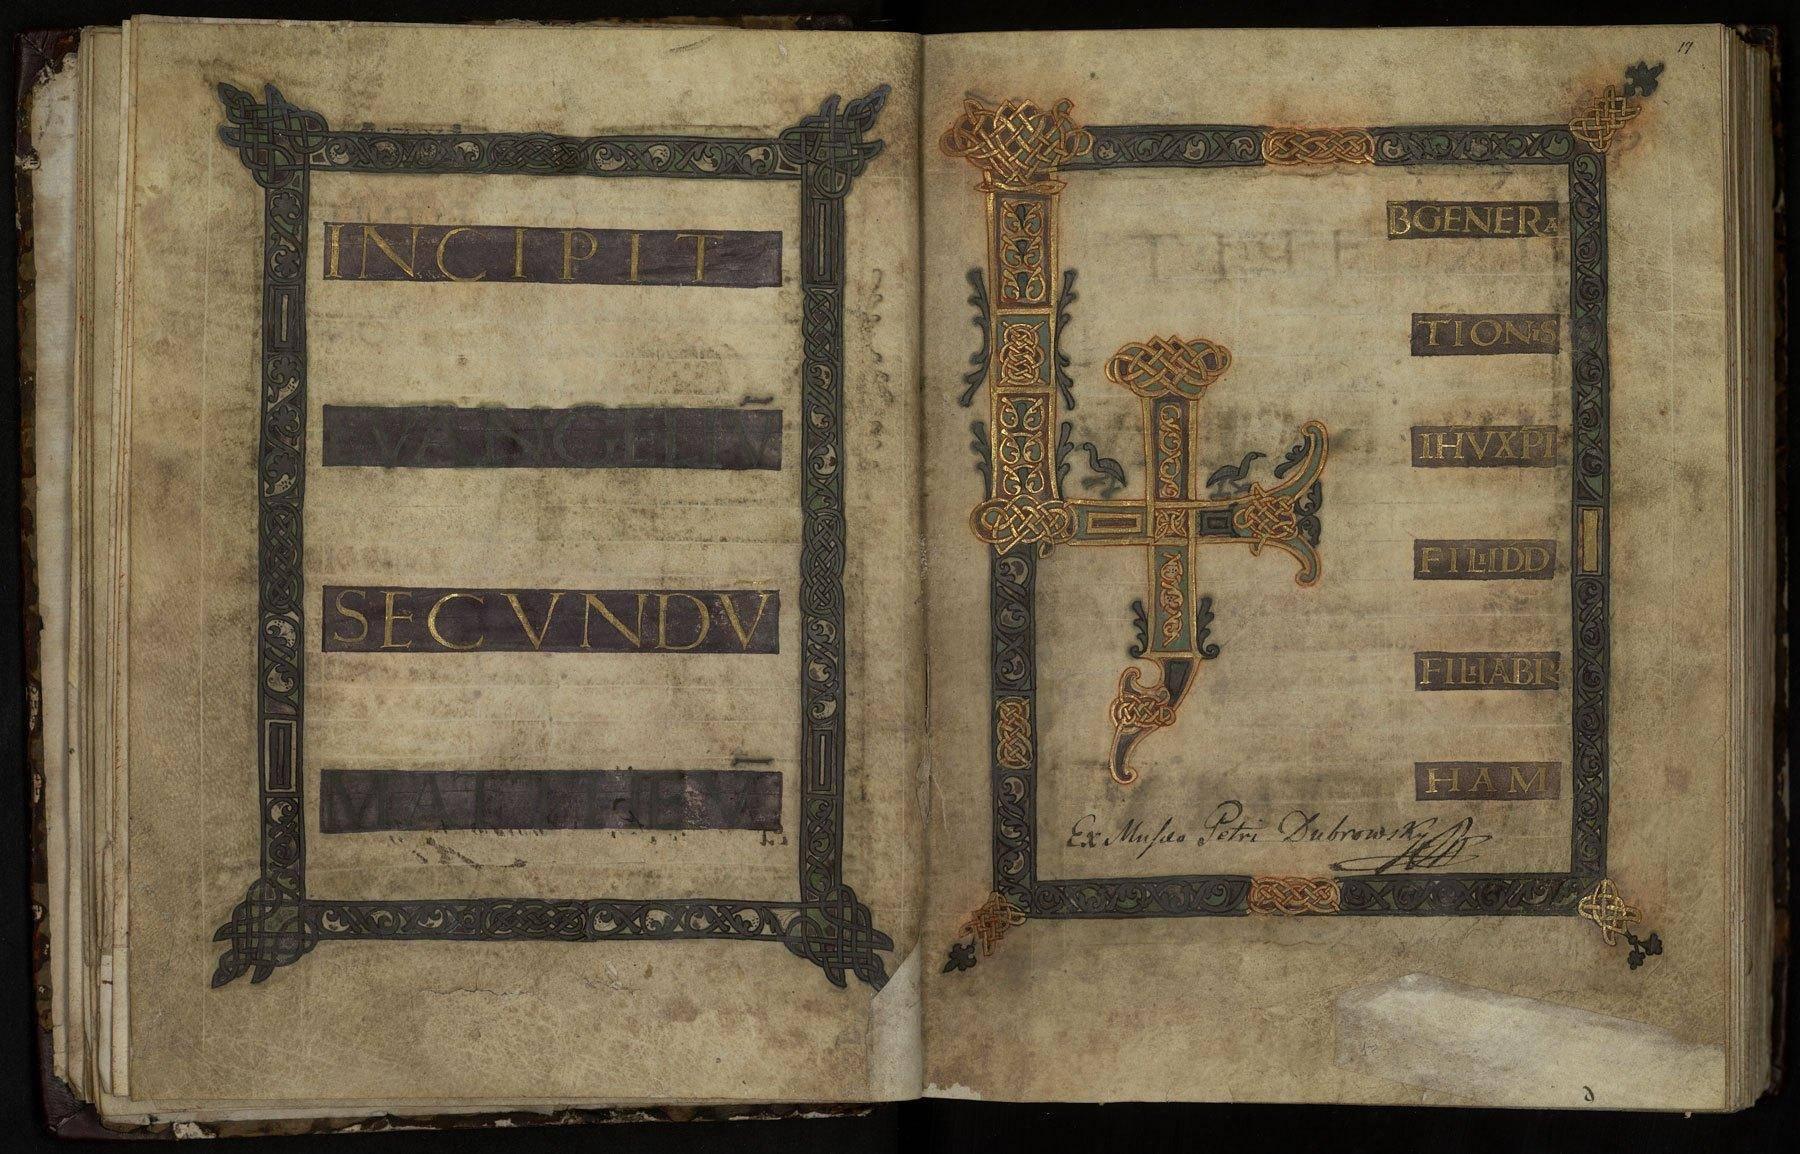 INCIPIT
EVANGELIU
SECVNDV
MATTHEV
17
LI
BGENERA
TIONIS
IHVXPI
FILIIDD
FILIIABR
HAM
Ex Musæo Petri Dubrowsky